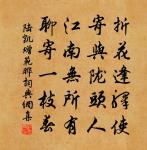 折花逢驛使
寄與隴頭人
江南無所有
聊寄一枝春
陸凱贈范曄詞典網集